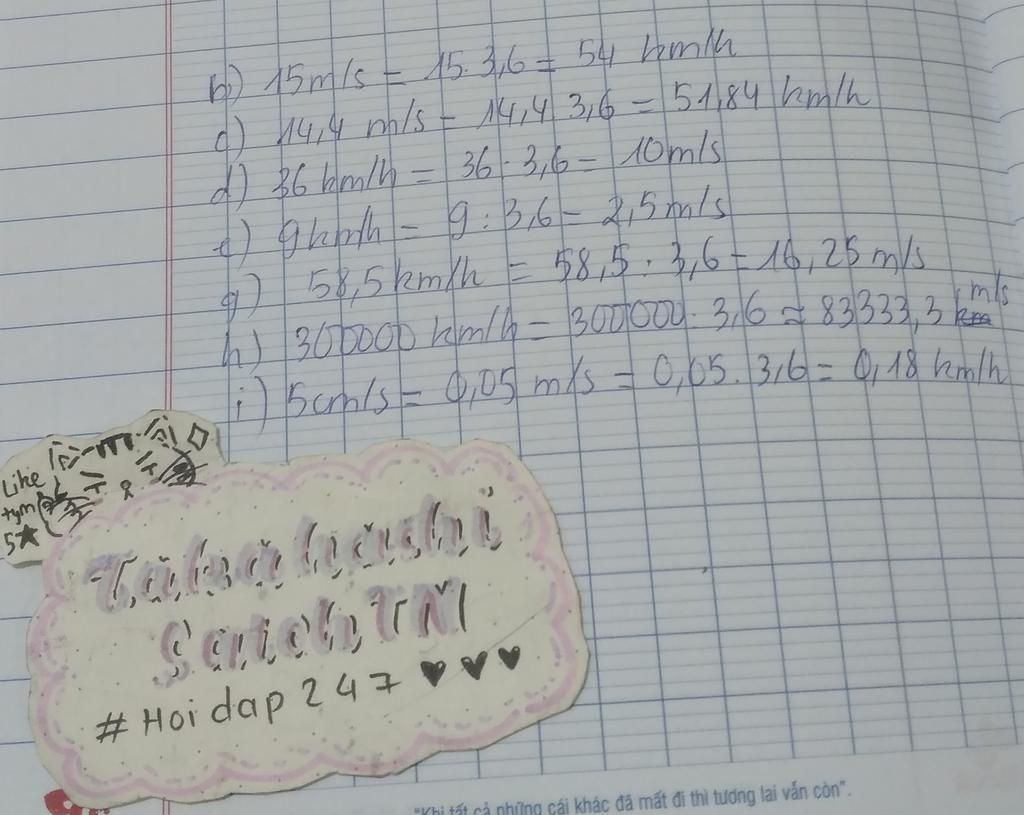 b) 15m/s = 15.3,6 = 54 km/h
c) 14,4 m/s = 14,4 3,6 = 51,84 km/h
d) 36 km/h = 36 : 3,6 = 10m/s
e) 9km/h = 9 : 3,6 = 2,5m/s
g) 58,5km/h = 58,5 : 3,6 = 16,25 m/s
h) 300000 km/h = 300000: 3,6 ≈ 83333,3 m/s
i) 5cm/s = 0,05 m/s = 0,05. 3,6 = 0,18 km/h
Like
tym
5★
Takahashi
TM
# Hoidap 247 ♥ ♥ ♥
"Khi tất cả những cái khác đã mất đi thì tương lai vẫn còn".